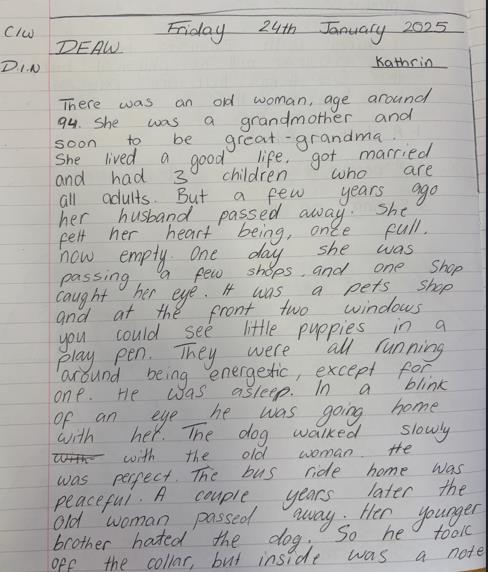 C/W Friday 24th January 2025
DEAW
D.I.N Kathrin
There was an old woman, age around
94. She was a grandmother and
soon to be great-grandma.
She lived a good life, got married
and had 3 children who are
all adults. But a few years ago
her husband passed away. She
felt her heart being, once full,
now empty. One day she was
passing a few shops, and one shop
caught her eye. It was a pets shop
and at the front two windows
you could see little puppies in a
play pen. They were all running
around being energetic, except for
one. He was asleep. In a blink
of an eye he was going home
with her. The dog walked slowly
with the old woman. He
was perfect. The bus ride home was
peaceful. A couple years later the
old woman passed away. Her younger
brother hated the dog. So he took
off the collar, but inside was a note